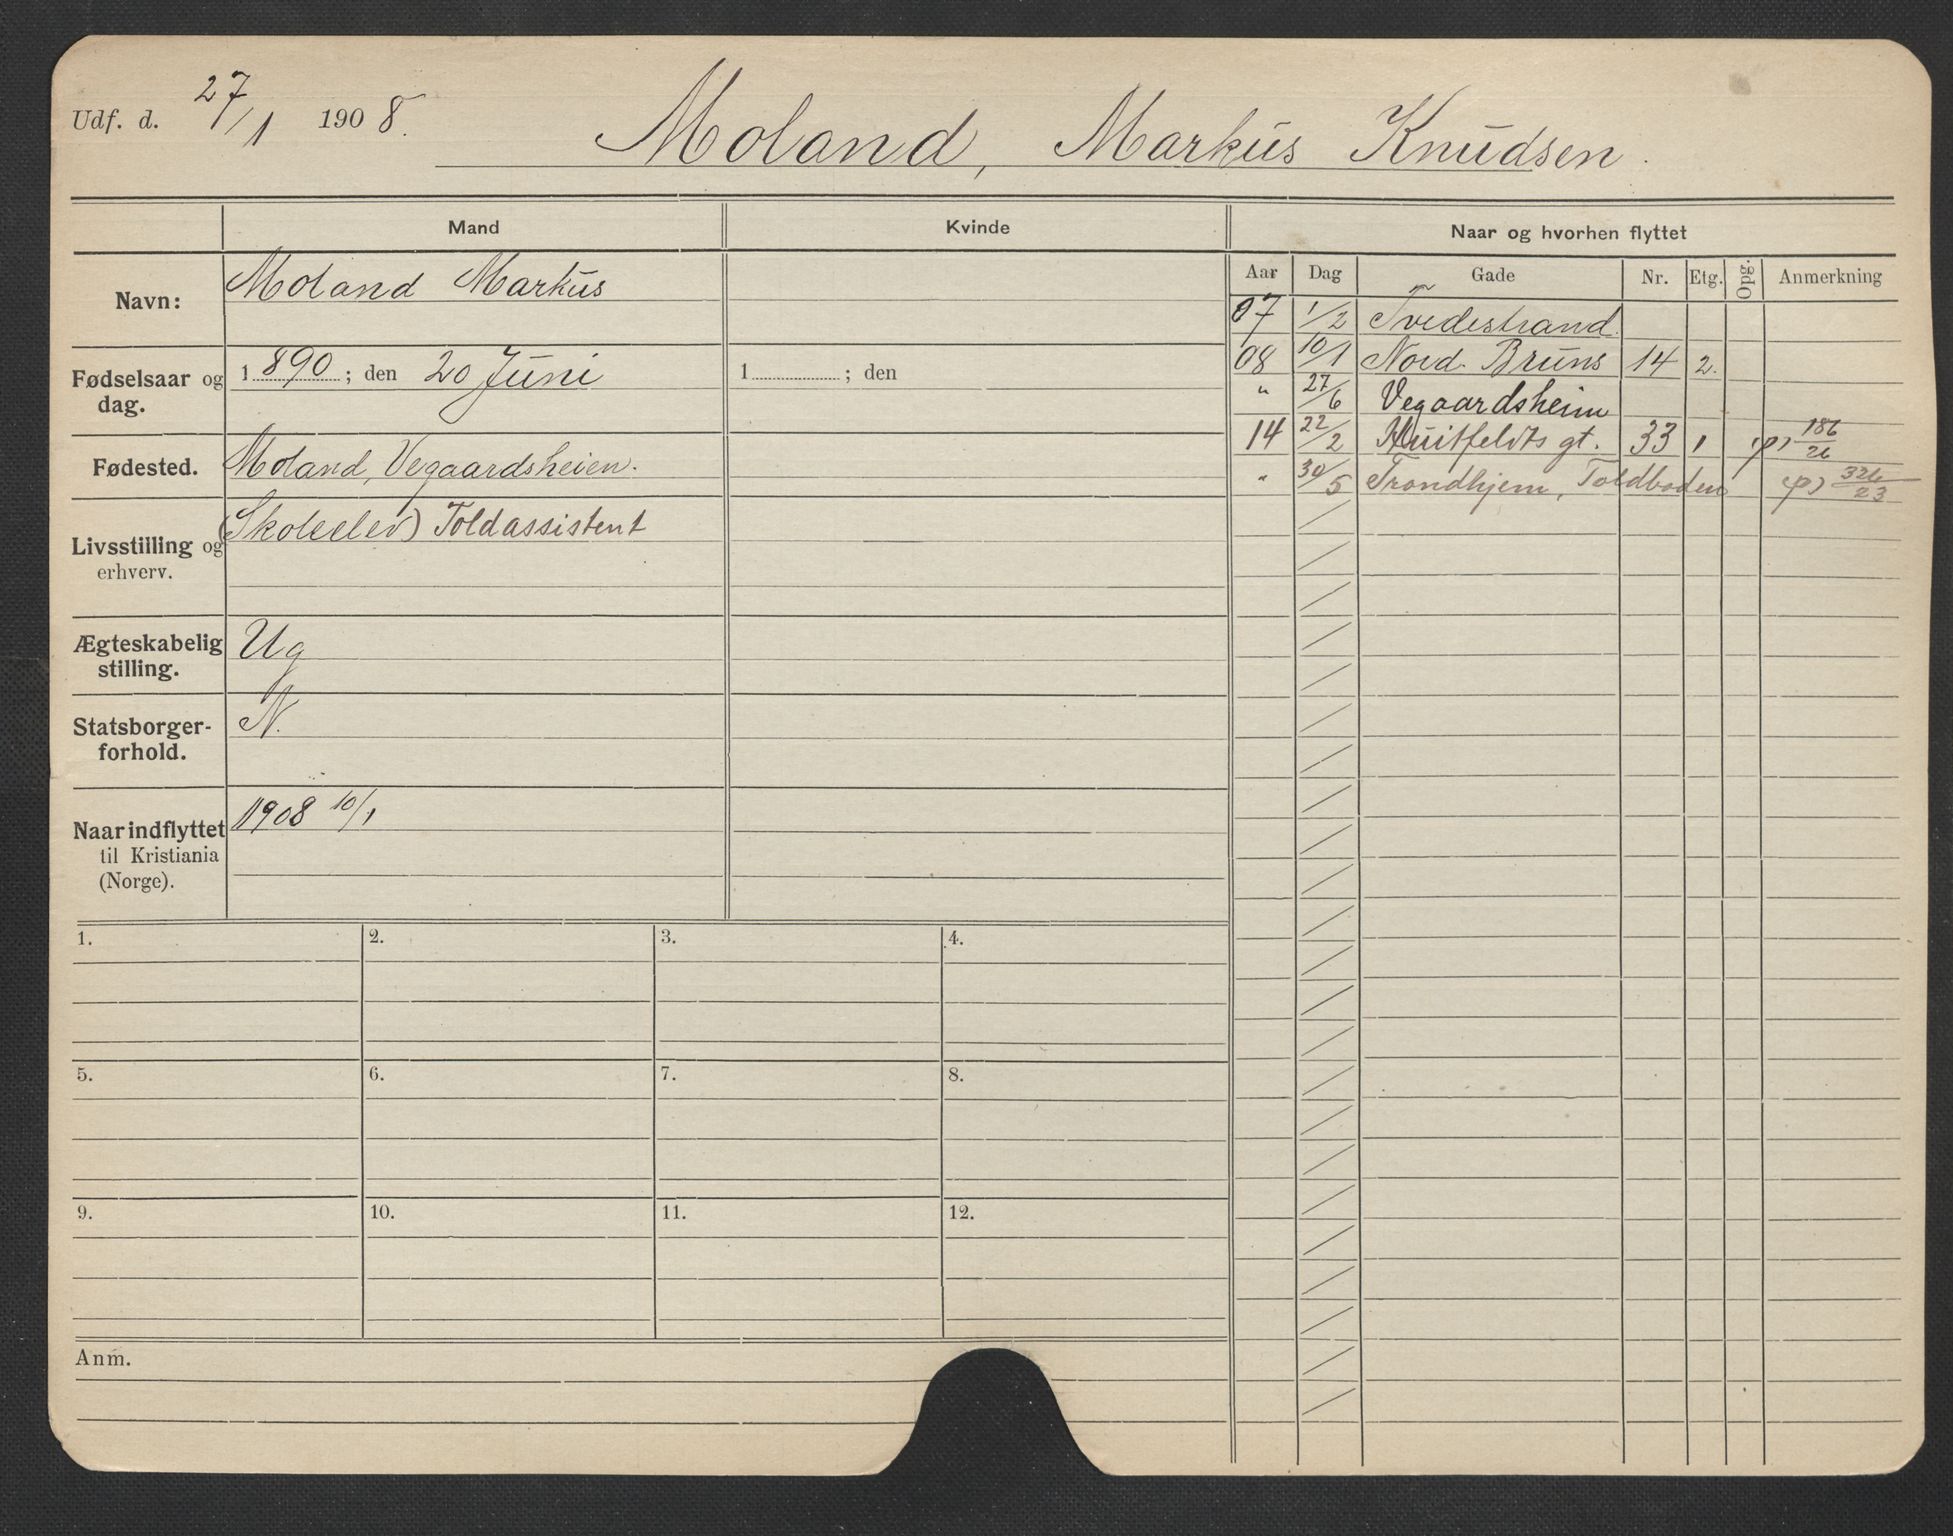 Udf. d. 27/1 1908.
Moland, Markus Knudsen.
Mand
Kvinde
Naar og hvorhen flyttet
Aar Dag Gade Nr. Etg. Opg. Anmerkning
Navn: Moland Markus
Fødselsaar og dag. 1890; den 20 Juni
1 ; den
Fødested. Moland, Vegaardsheien.
Livsstilling og erhverv. (Skoleelev) Toldassistent
Ægteskabelig stilling. Ug
Statsborgerforhold. N.
Naar indflyttet til Kristiania (Norge). 1908 10/1
07 1/2 Tvedestrand
08 10/1 Nord. Bruns 14 2.
" 27/6 Vegaardsheim
14 22/2 Huitfeldts gt. 33 1 186/26
" 30/5 Trondhjem, Toldboden 326/23
1. 2. 3. 4.
5. 6. 7. 8.
9. 10. 11. 12.
Anm.